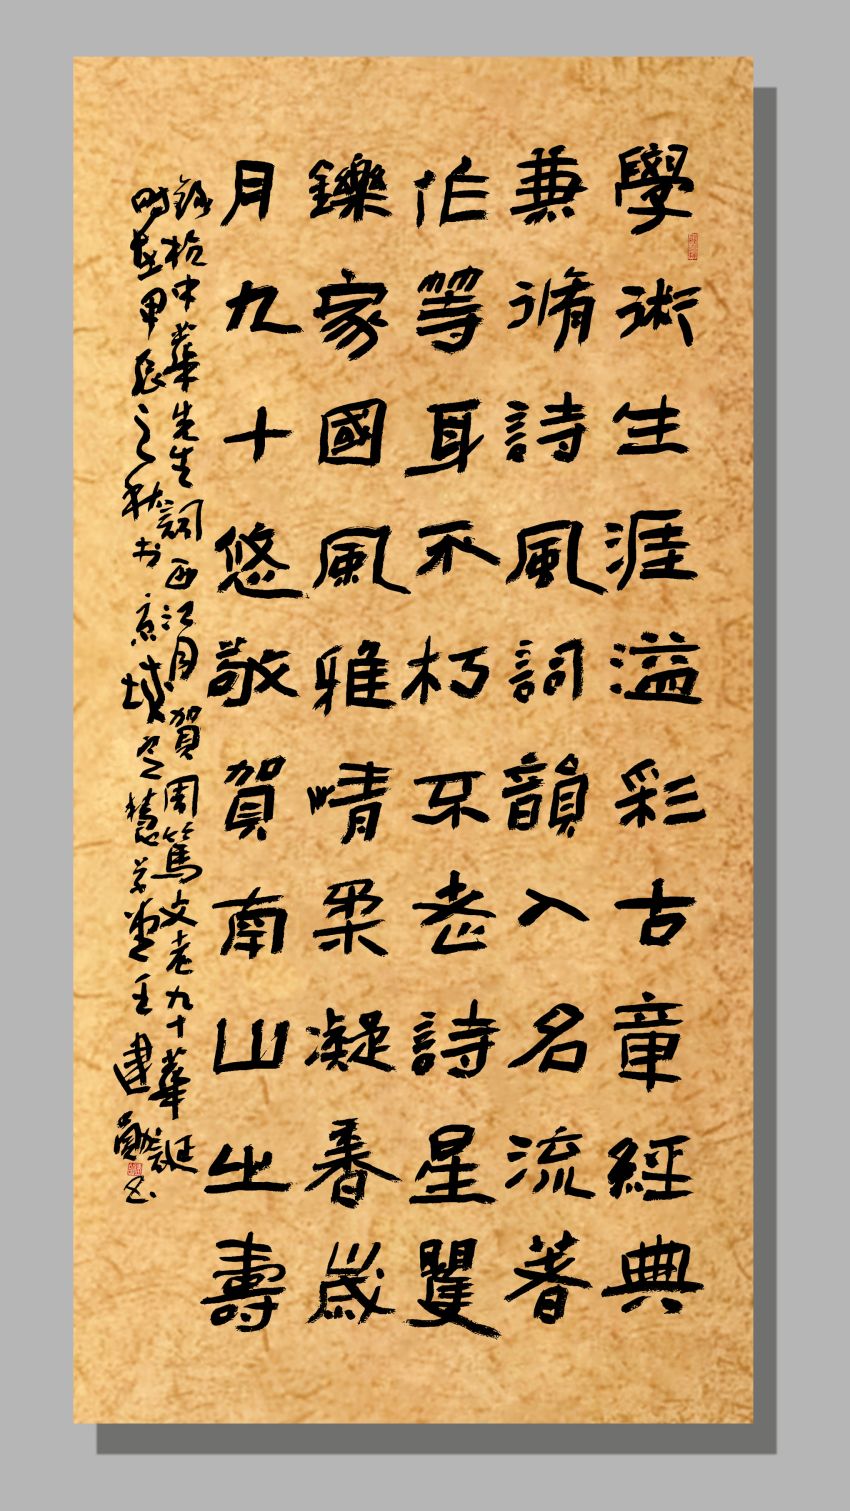 學術生涯溢彩古章經典
兼脩詩風詞韻入名流著
作等耳不朽不老詩星矍
鑠家國風雅晴柔凝香歲
月九十悠敬賀南山之壽
錄杭中華先生詞西江月賀周篤文老九十華誕
时在甲辰之秋书京城 慧 堂主建勳